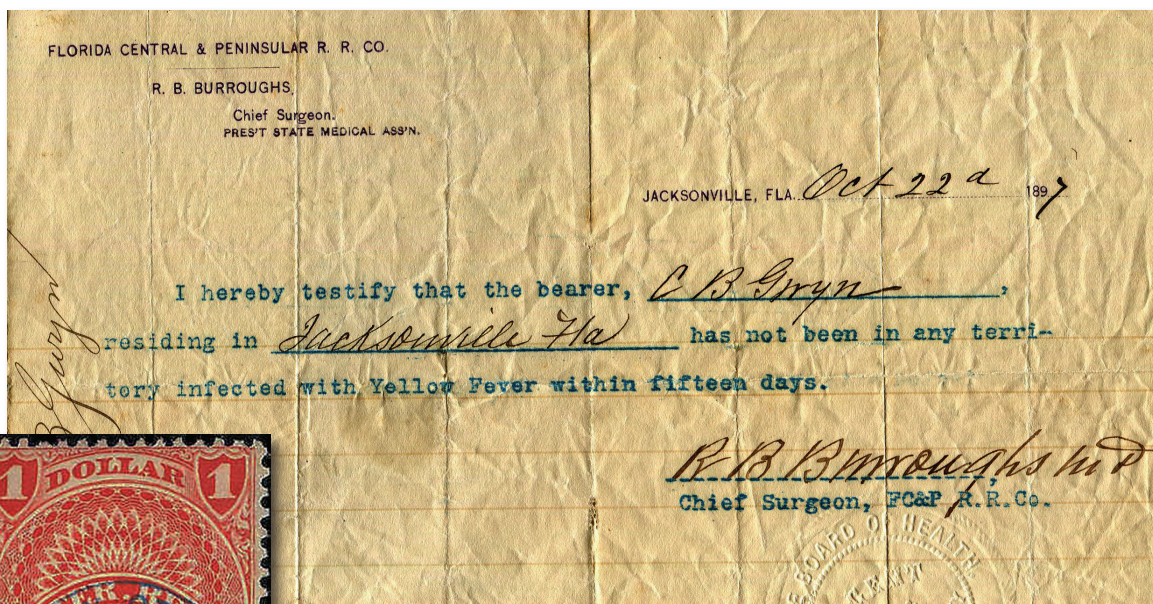 FLORIDA CENTRAL & PENINSULAR R. R. CO.
R. B. BURROUGHS,
Chief Surgeon.
PRES'T STATE MEDICAL ASS'N.
JACKSONVILLE, FLA. Oct 22d 1897
I hereby testify that the bearer, C B Gwyn,
residing in Jacksonville Fla has not been in any terri-
tory infected with Yellow Fever within fifteen days.
R B Burroughs MD,
Chief Surgeon, FC&P R.R.Co.
B Gwyn
BOARD OF HEALTH
1 DOLLAR 1